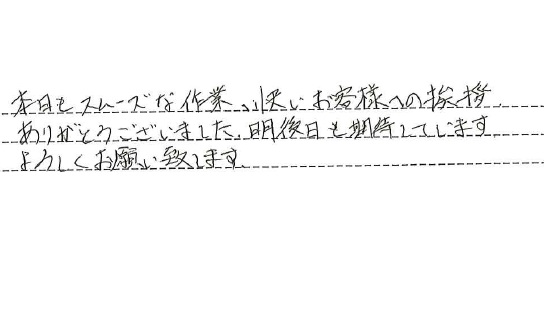 本日もスムーズな作業、快いお客様への挨拶、
ありがとうございました。明後日も期待しています。
よろしくお願い致します。